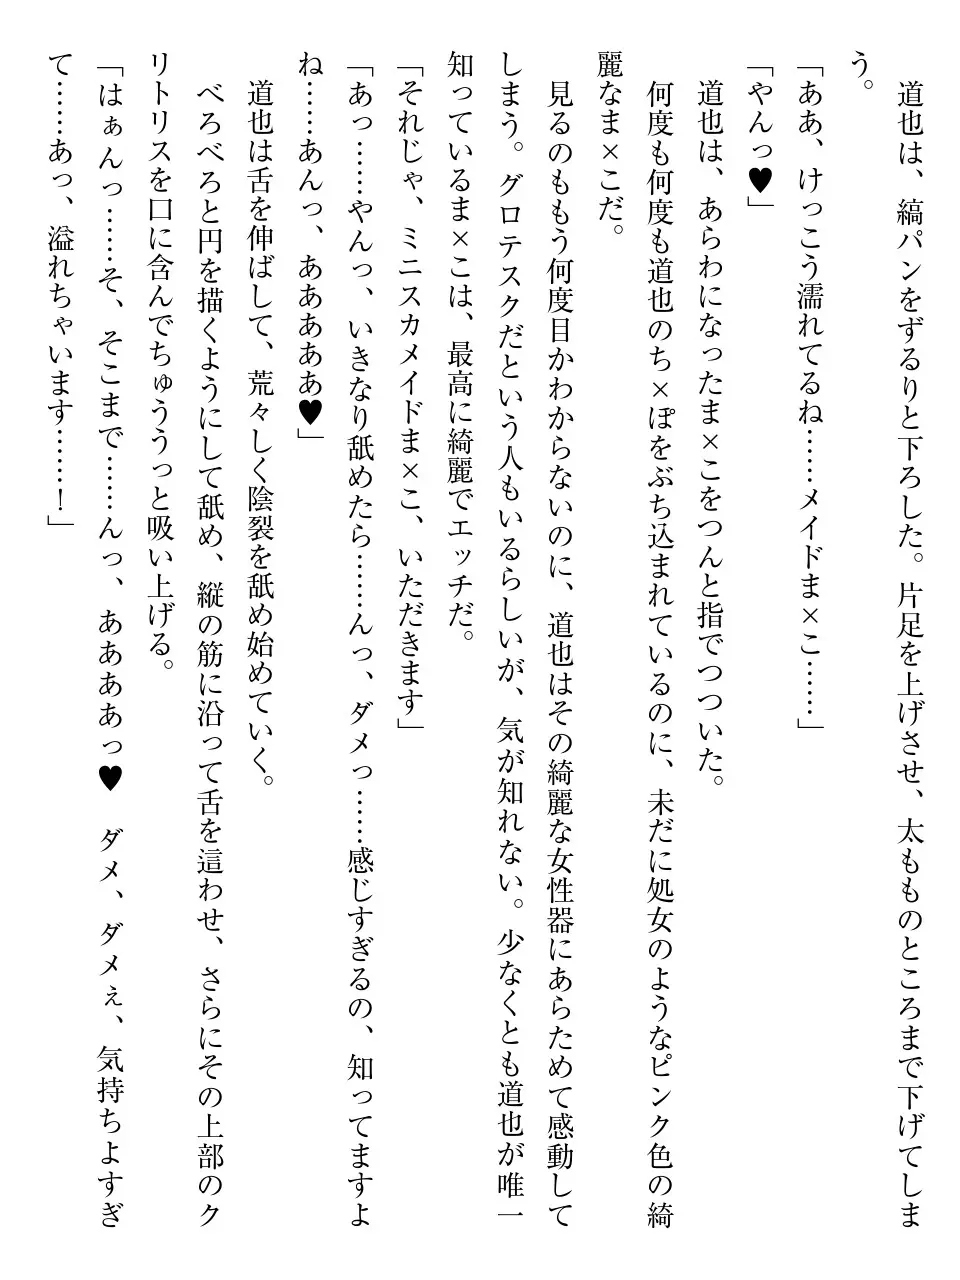 道也は、縞パンをずるりと下ろした。片足を上げさせ、太もものところまで下げてしま
う。
「ああ、けっこう濡れてるね……メイドま×こ……」
「やんっ♥」
道也は、あらわになったま×こをつんと指でつついた。
何度も何度も道也のち×ぽをぶち込まれているのに、未だに処女のようなピンク色の綺
麗なま×こだ。
見るのももう何度目かわからないのに、道也はその綺麗な女性器にあらためて感動して
しまう。グロテスクだという人もいるらしいが、気が知れない。少なくとも道也が唯一
知っているま×こは、最高に綺麗でエッチだ。
「それじゃ、ミニスカメイドま×こ、いただきます」
「あっ……やんっ、いきなり舐めたら……んっ、ダメっ……感じすぎるの、知ってますよ
ね……あんっ、あああああ♥」
道也は舌を伸ばして、荒々しく陰裂を舐め始めていく。
べろべろと円を描くようにして舐め、縦の筋に沿って舌を這わせ、さらにその上部のク
リトリスを口に含んでちゅううっと吸い上げる。
「はぁんっ……そ、そこまで……んっ、ああああっ♥　ダメ、ダメぇ、気持ちよすぎ
て……あっ、溢れちゃいます……！」